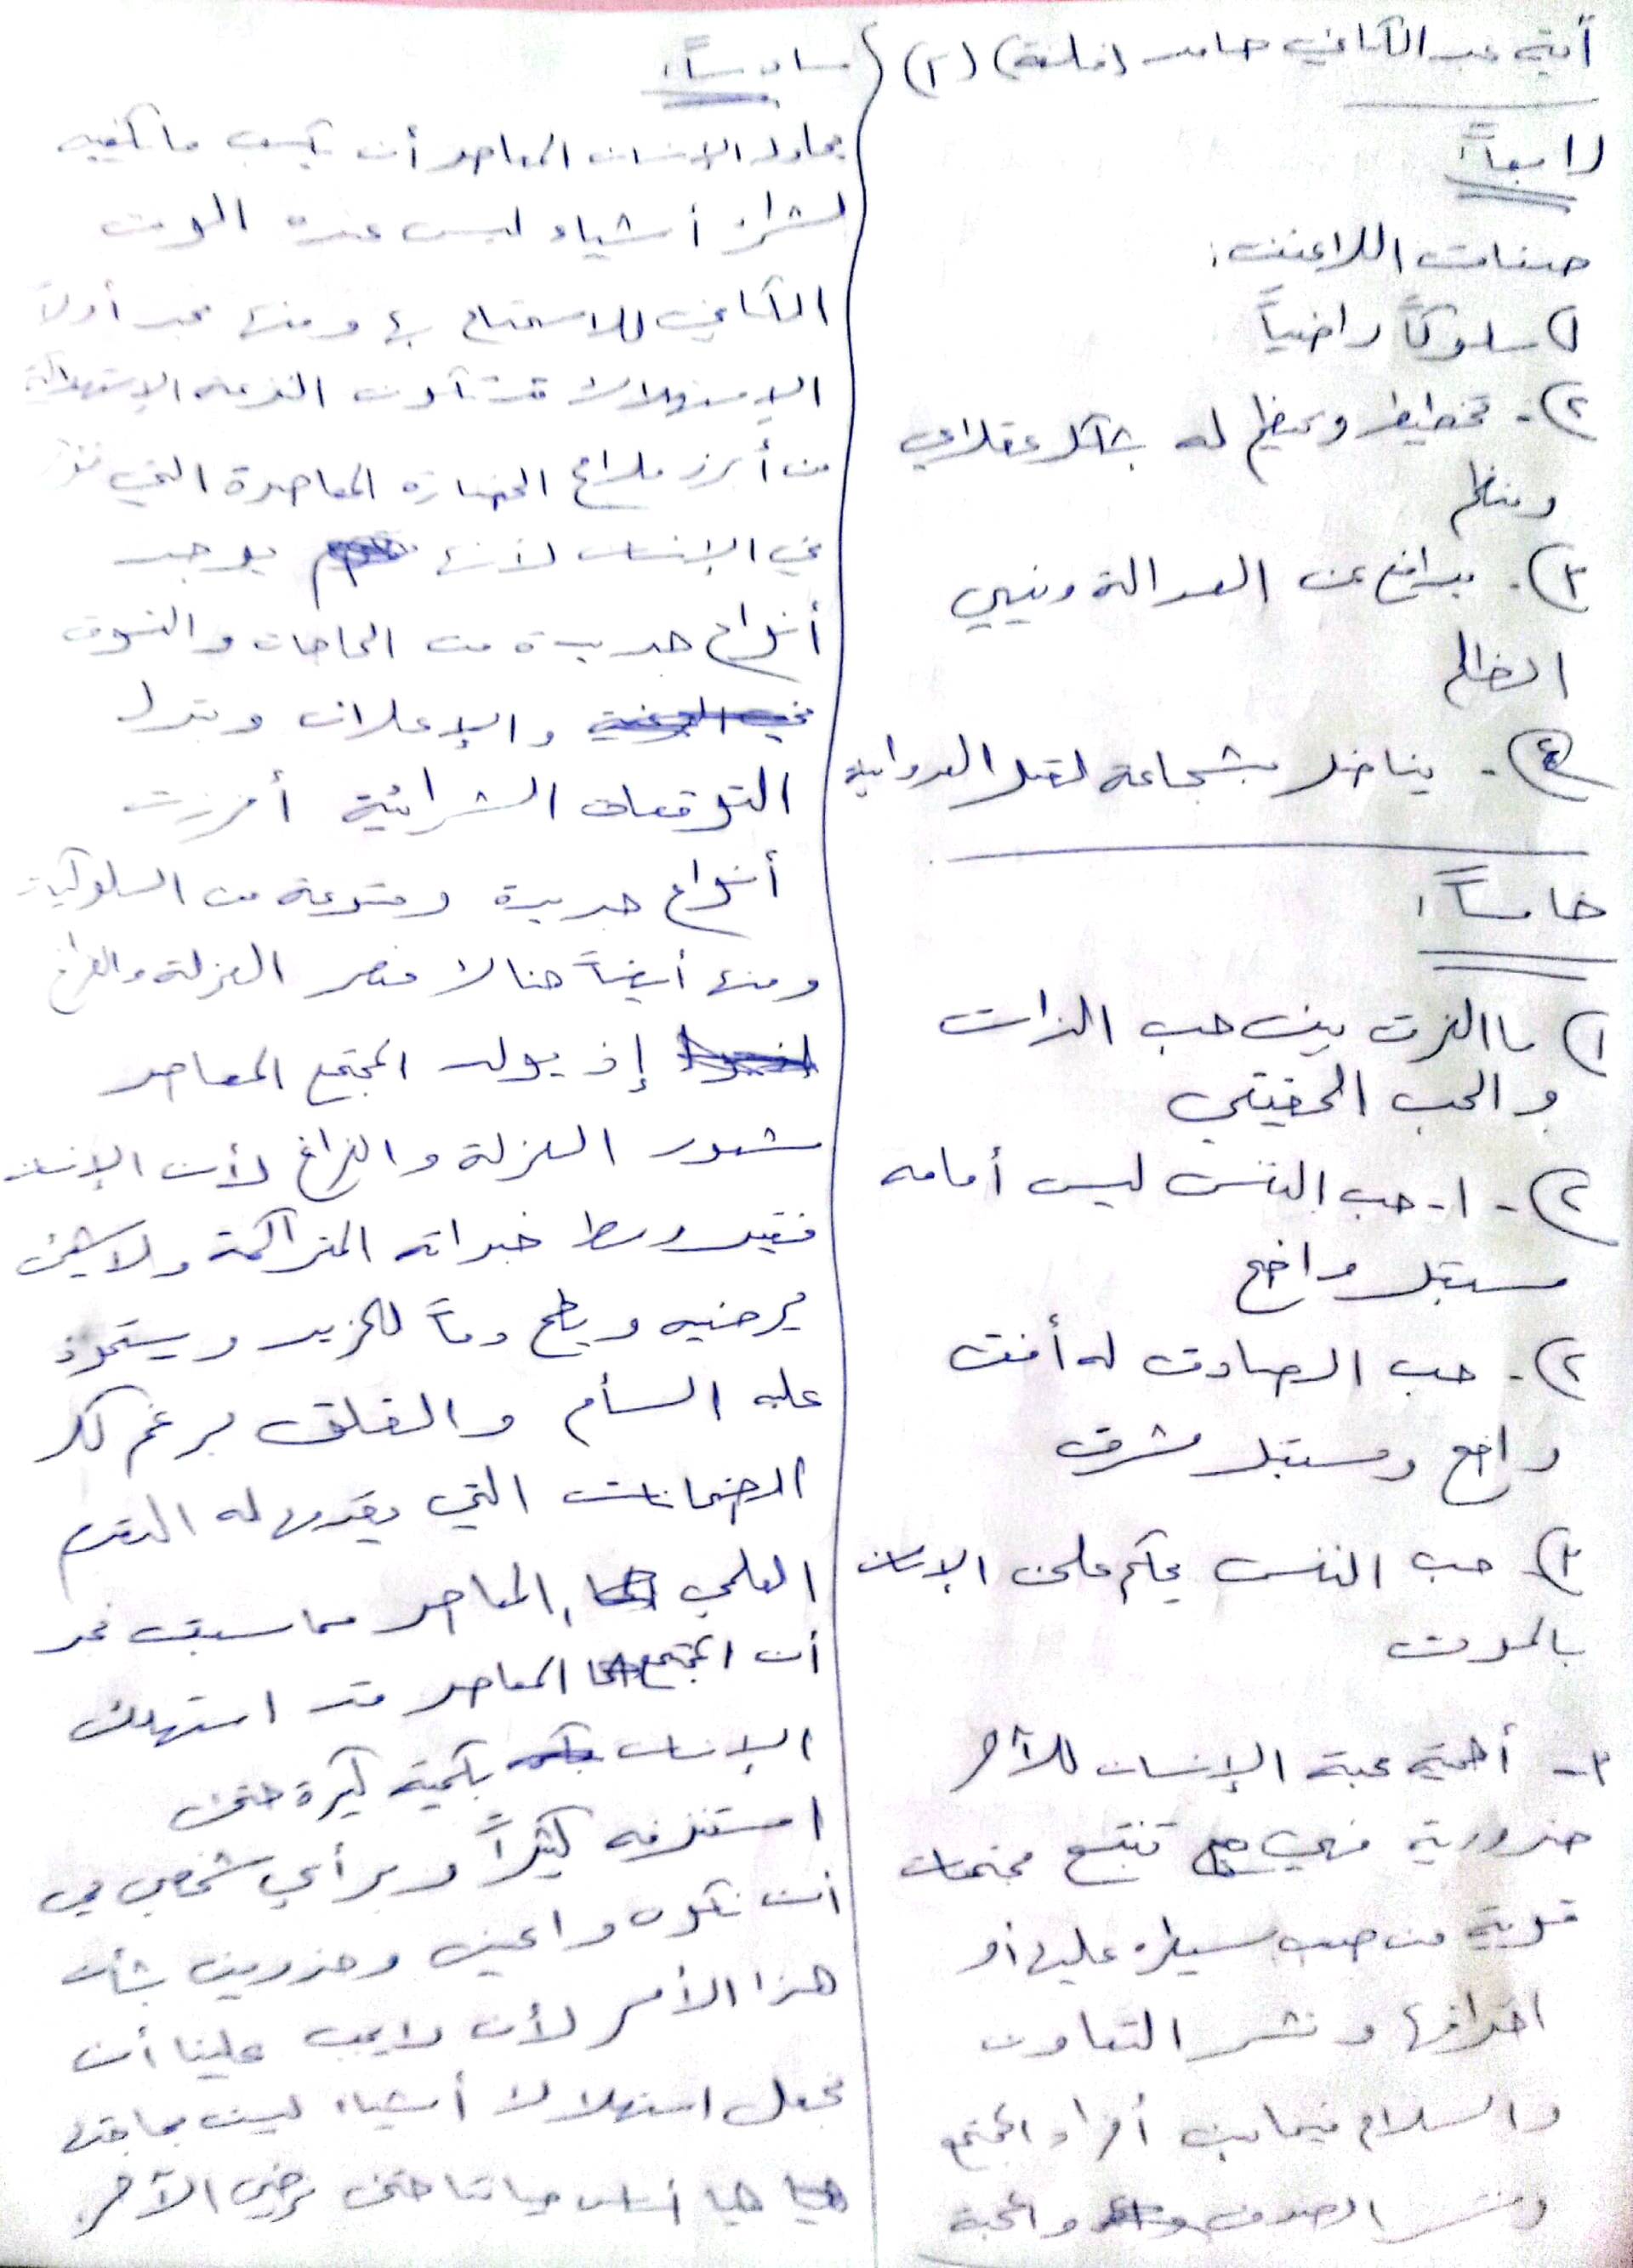 آية عبد الكافي حامد (فلسفة) (٢)
رابعاً:
صفات اللاعنف:
١) سلوكاً راضياً
٢)- تخطيط وتنظيم له بشكل عقلاني
ومنظم
٣)- يدافع عن العدالة وينهي
الظلم
٤)- يناضل بشجاعة لقتل العدوانية
خامساً:
١) ما الفرق بين حب الذات
والحب الحقيقي
٢)- ١- حب النفس ليس أمامه
مستقبل واضح
٢)- حب الصادق له أفق
واضح ومستقبل مشرق
٣) حب النفس يحكم على الإنسان
بالموت
٣- أهمية محبة الإنسان للآخر
ضرورية فهي تنتج مجتمعات
قوية من صعب سيطرة عليها أو
اختراقها ونشر التعاون
والسلام فيما بين أفراد المجتمع
ونشر الصدق والمحبة
سادساً:
يحاول الإنسان المعاصر أن يكسب ما يكفيه
لشراء أشياء ليس عنده الوقت
الكافي للاستمتاع بها ومنها نجد أولاً
الاستهلاك قد تكون النزعة الاستهلاكية
من أبرز ملامح الحضارة المعاصرة التي
في الإنسان لأنها يوجد
أنواع جديدة من الحاجات والتسوق
والإعلان وتبدل
التوقعات الشرائية أفرزت
أنواع جديدة ومتنوعة من السلوكيات
ومنها أيضاً هنالك عنصر العزلة والفراغ
إذ يولد المجتمع المعاصر
شعور العزلة والفراغ لأن الإنسان
فقير وسط خبراته المتراكمة ولا شيء
يرضيه ويطمح دوماً للمزيد ويستحوذ
عليه السأم والقلق برغم كل
الضمانات التي يقدمها له التقدم
العلمي المعاصر مما سبق نجد
أن المجتمع المعاصر قد استهلك
الإنسان بكمية كبيرة حتى
استنزفه كثيراً وبرأيي شخصي
أن نكون واعين وحذرين بشأن
هذا الأمر لأن لا يجب علينا أن
نجعل استهلاك أشياء ليست بحاجتها
هيا أساس حياتنا حتى نرضي الآخر.